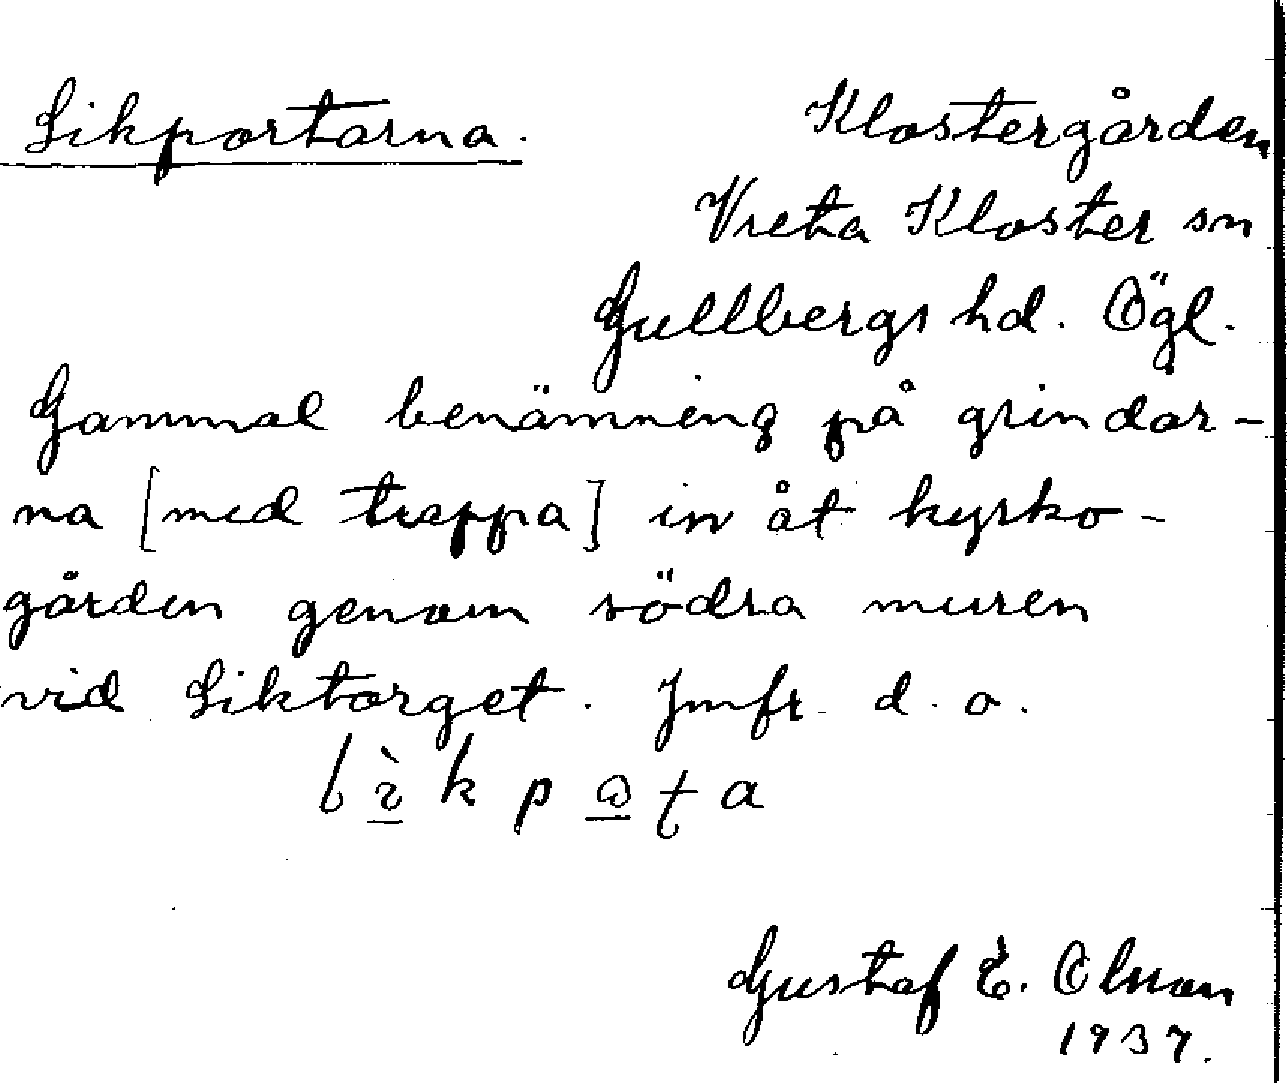 Likportarna.
Klostergården
Vreta Kloster sn
Gullbergs hd. Ögl.
Gammal benämning på grindar-
na [med trappa] in åt kyrko-
gården genom södra muren
vid Liktorget. Jmfr d. o.
Gustaf E. Olsson
1937.